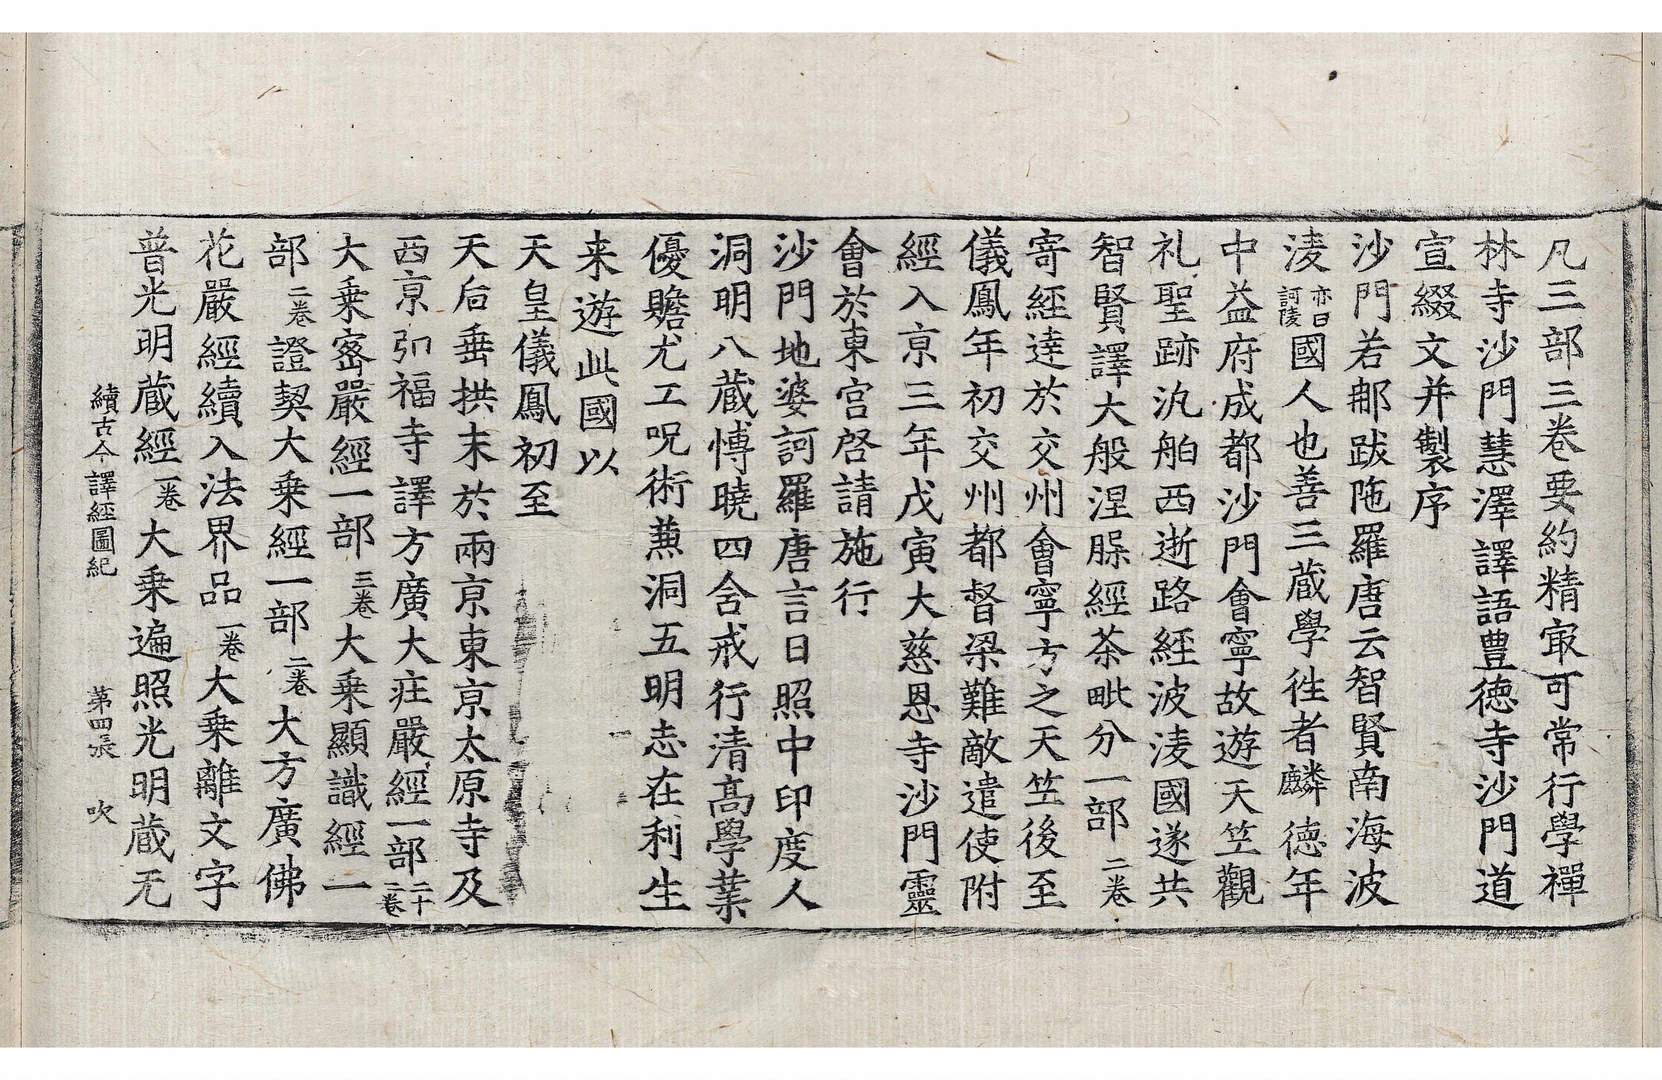 凡三部三卷要約精㝡可常行學禪
林寺沙門慧澤譯語豊德寺沙門道
宣綴文并製序
沙門若那跋陁羅唐云智賢南海波
淩亦曰訶陵國人也善三藏學徃者麟德年
中益府成都沙門會寧故遊天竺觀
礼聖跡汎舶西逝路經波淩國遂共
智賢譯大般涅槃經荼毗分一部二卷
寄經達於交州會寧方之天竺後至
儀鳳年初交州都督梁難敵遣使附
經入京三年戊寅大慈恩寺沙門靈
會於東宮啓請施行
沙門地婆訶羅唐言日照中印度人
洞明八藏博曉四含戒行清高學業
優贍尤工呪術兼洞五明志在利生
来遊此國以
天皇儀鳳初至
天后垂拱末於兩京東京太原寺及
西京弘福寺譯方廣大莊嚴經一部二十二卷
大乗密嚴經一部三卷大乗顯識經一
部二卷證契大乗經一部二卷大方廣佛
花嚴經續入法界品一卷大乗離文字
普光明藏經一卷大乗遍照光明藏无
續古今譯經圖紀 第四張 吹